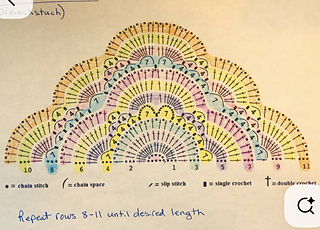 7 7
7 7
10 8 6 4 2 1 3 5 7 9 11
• = chain stitch ( = chain space / = slip stitch ▮ = single crochet † = double crochet
Repeat rows 8-11 until desired length